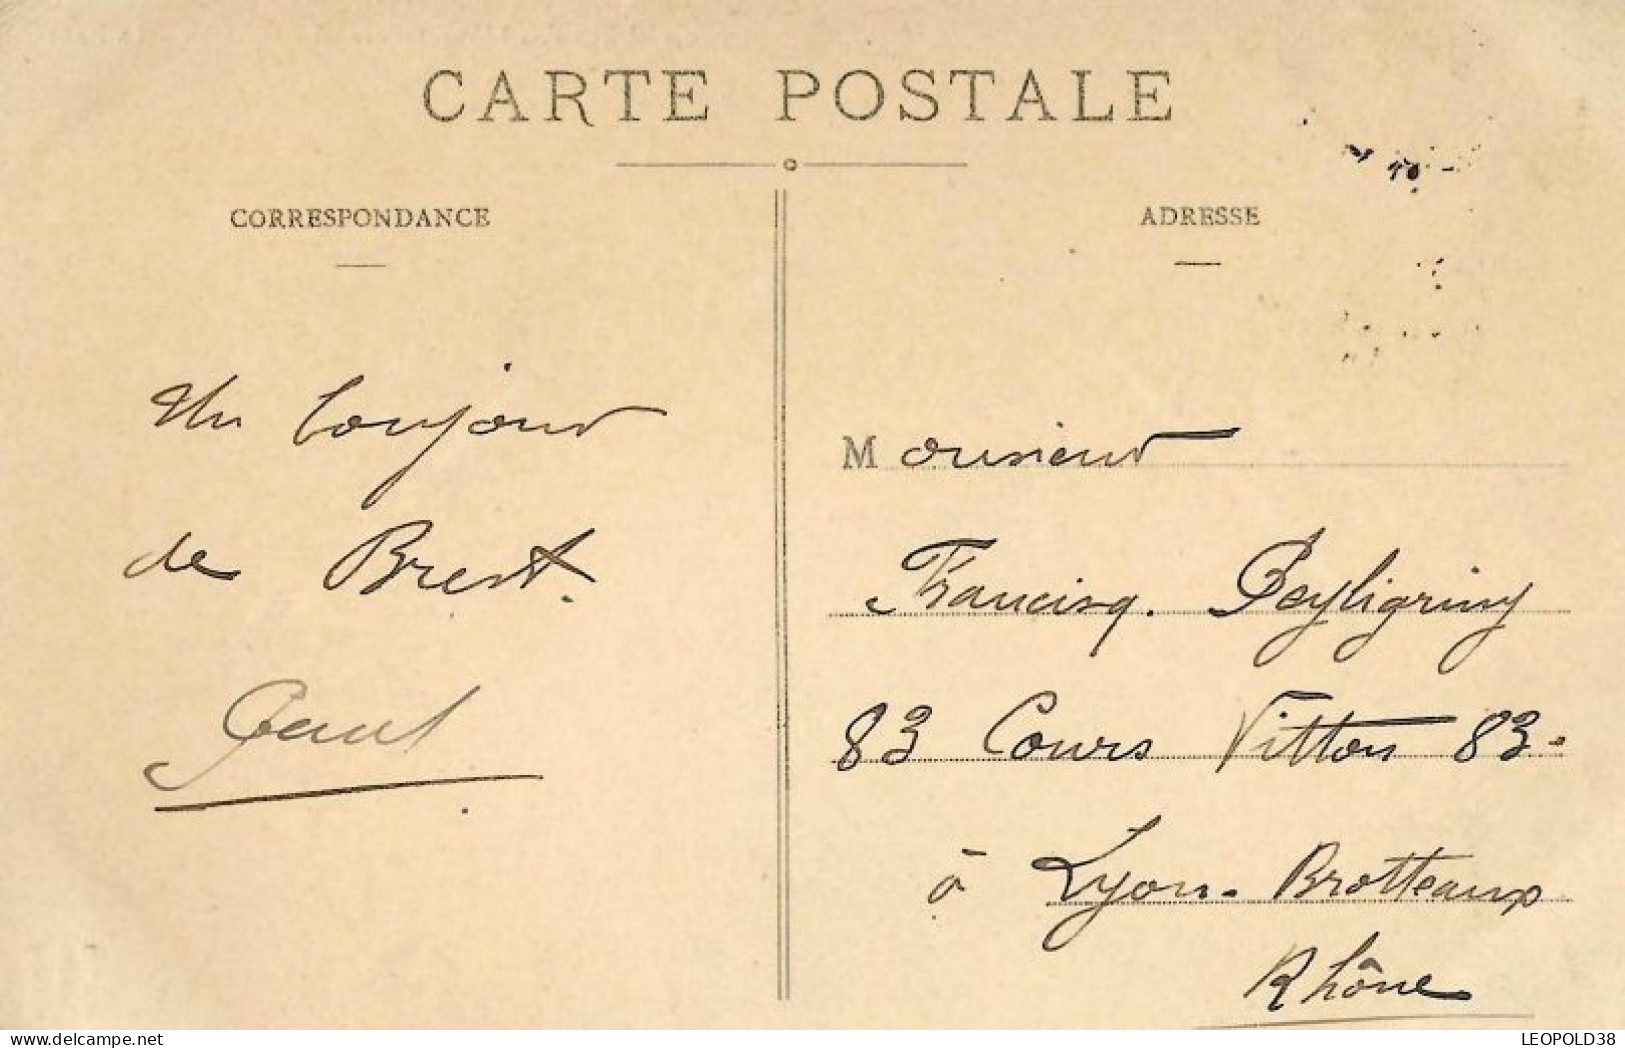 CARTE POSTALE
CORRESPONDANCE
Un bonjour
de Brest.
Paul
ADRESSE
Monsieur
Francisq. Peyligriny
83 Cours Vitton 83.
à Lyon-Brotteaux
Rhône
LEOPOLD38